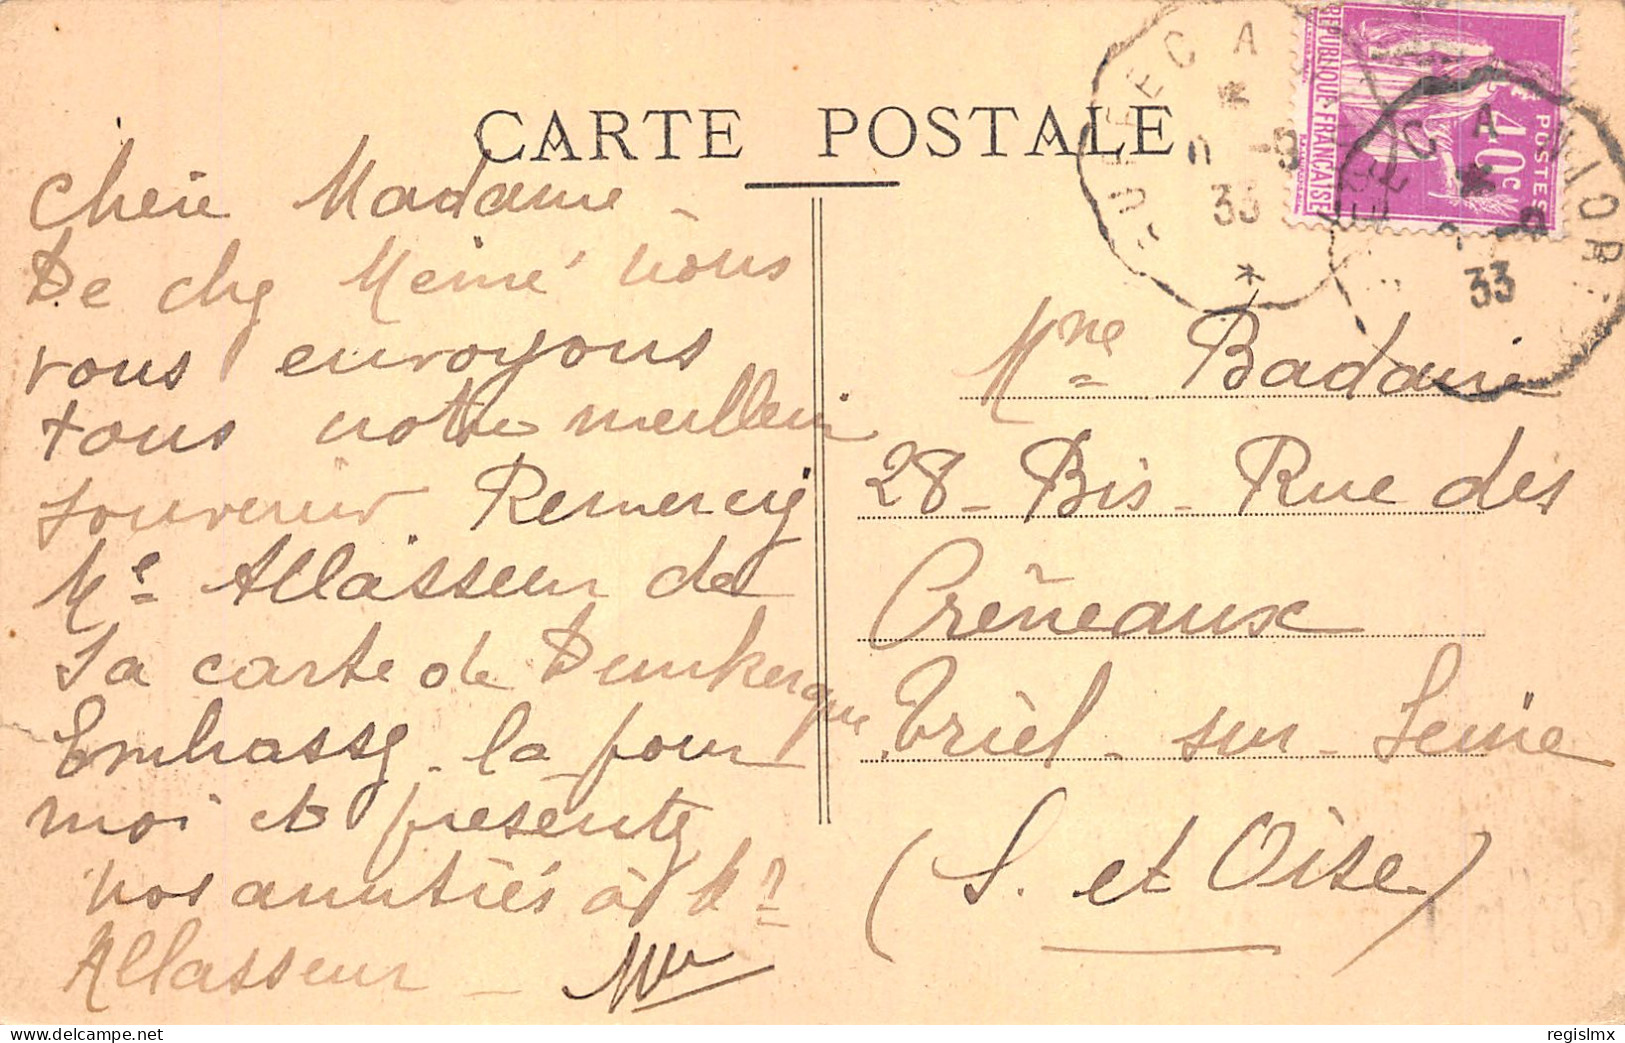 CARTE POSTALE
RUFFEC A NIORT
33
33
REPUBLIQUE FRANÇAISE
POSTES
40c
Chère Madame -
De chez Mémé nous
vous envoyons
tous notre meilleur
souvenir. Remerciez
Me Allasseur de
sa carte de Dunkerque
Embrassez - la pour
moi et présentez
nos amitiés à Mr
Allasseur -
Mme Badaire
28 - Bis - Rue des
Crêneaux
Triel - sur - Seine
(S. et Oise)
delcampe.net
regislmx